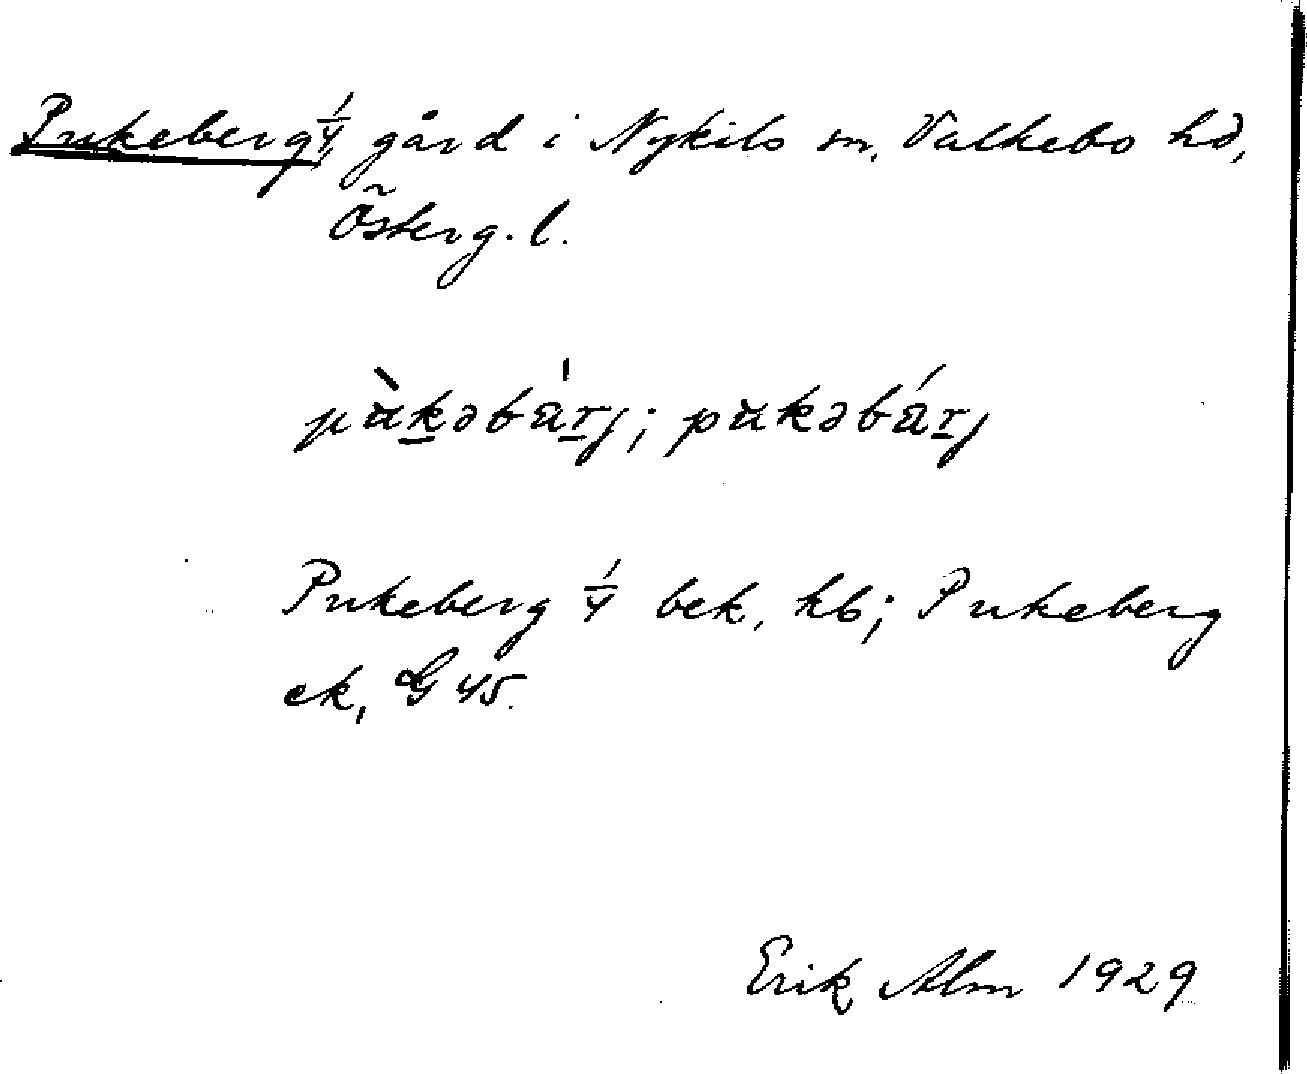 Pukeberg 1/4, gård i Nykils sn, Valkebo hd,
Österg. l.
pùk̲əbár̲j; pukəbár̲j
Pukeberg 1/4 bek, kb; Pukeberg
ek, G 45.
Erik Alm 1929